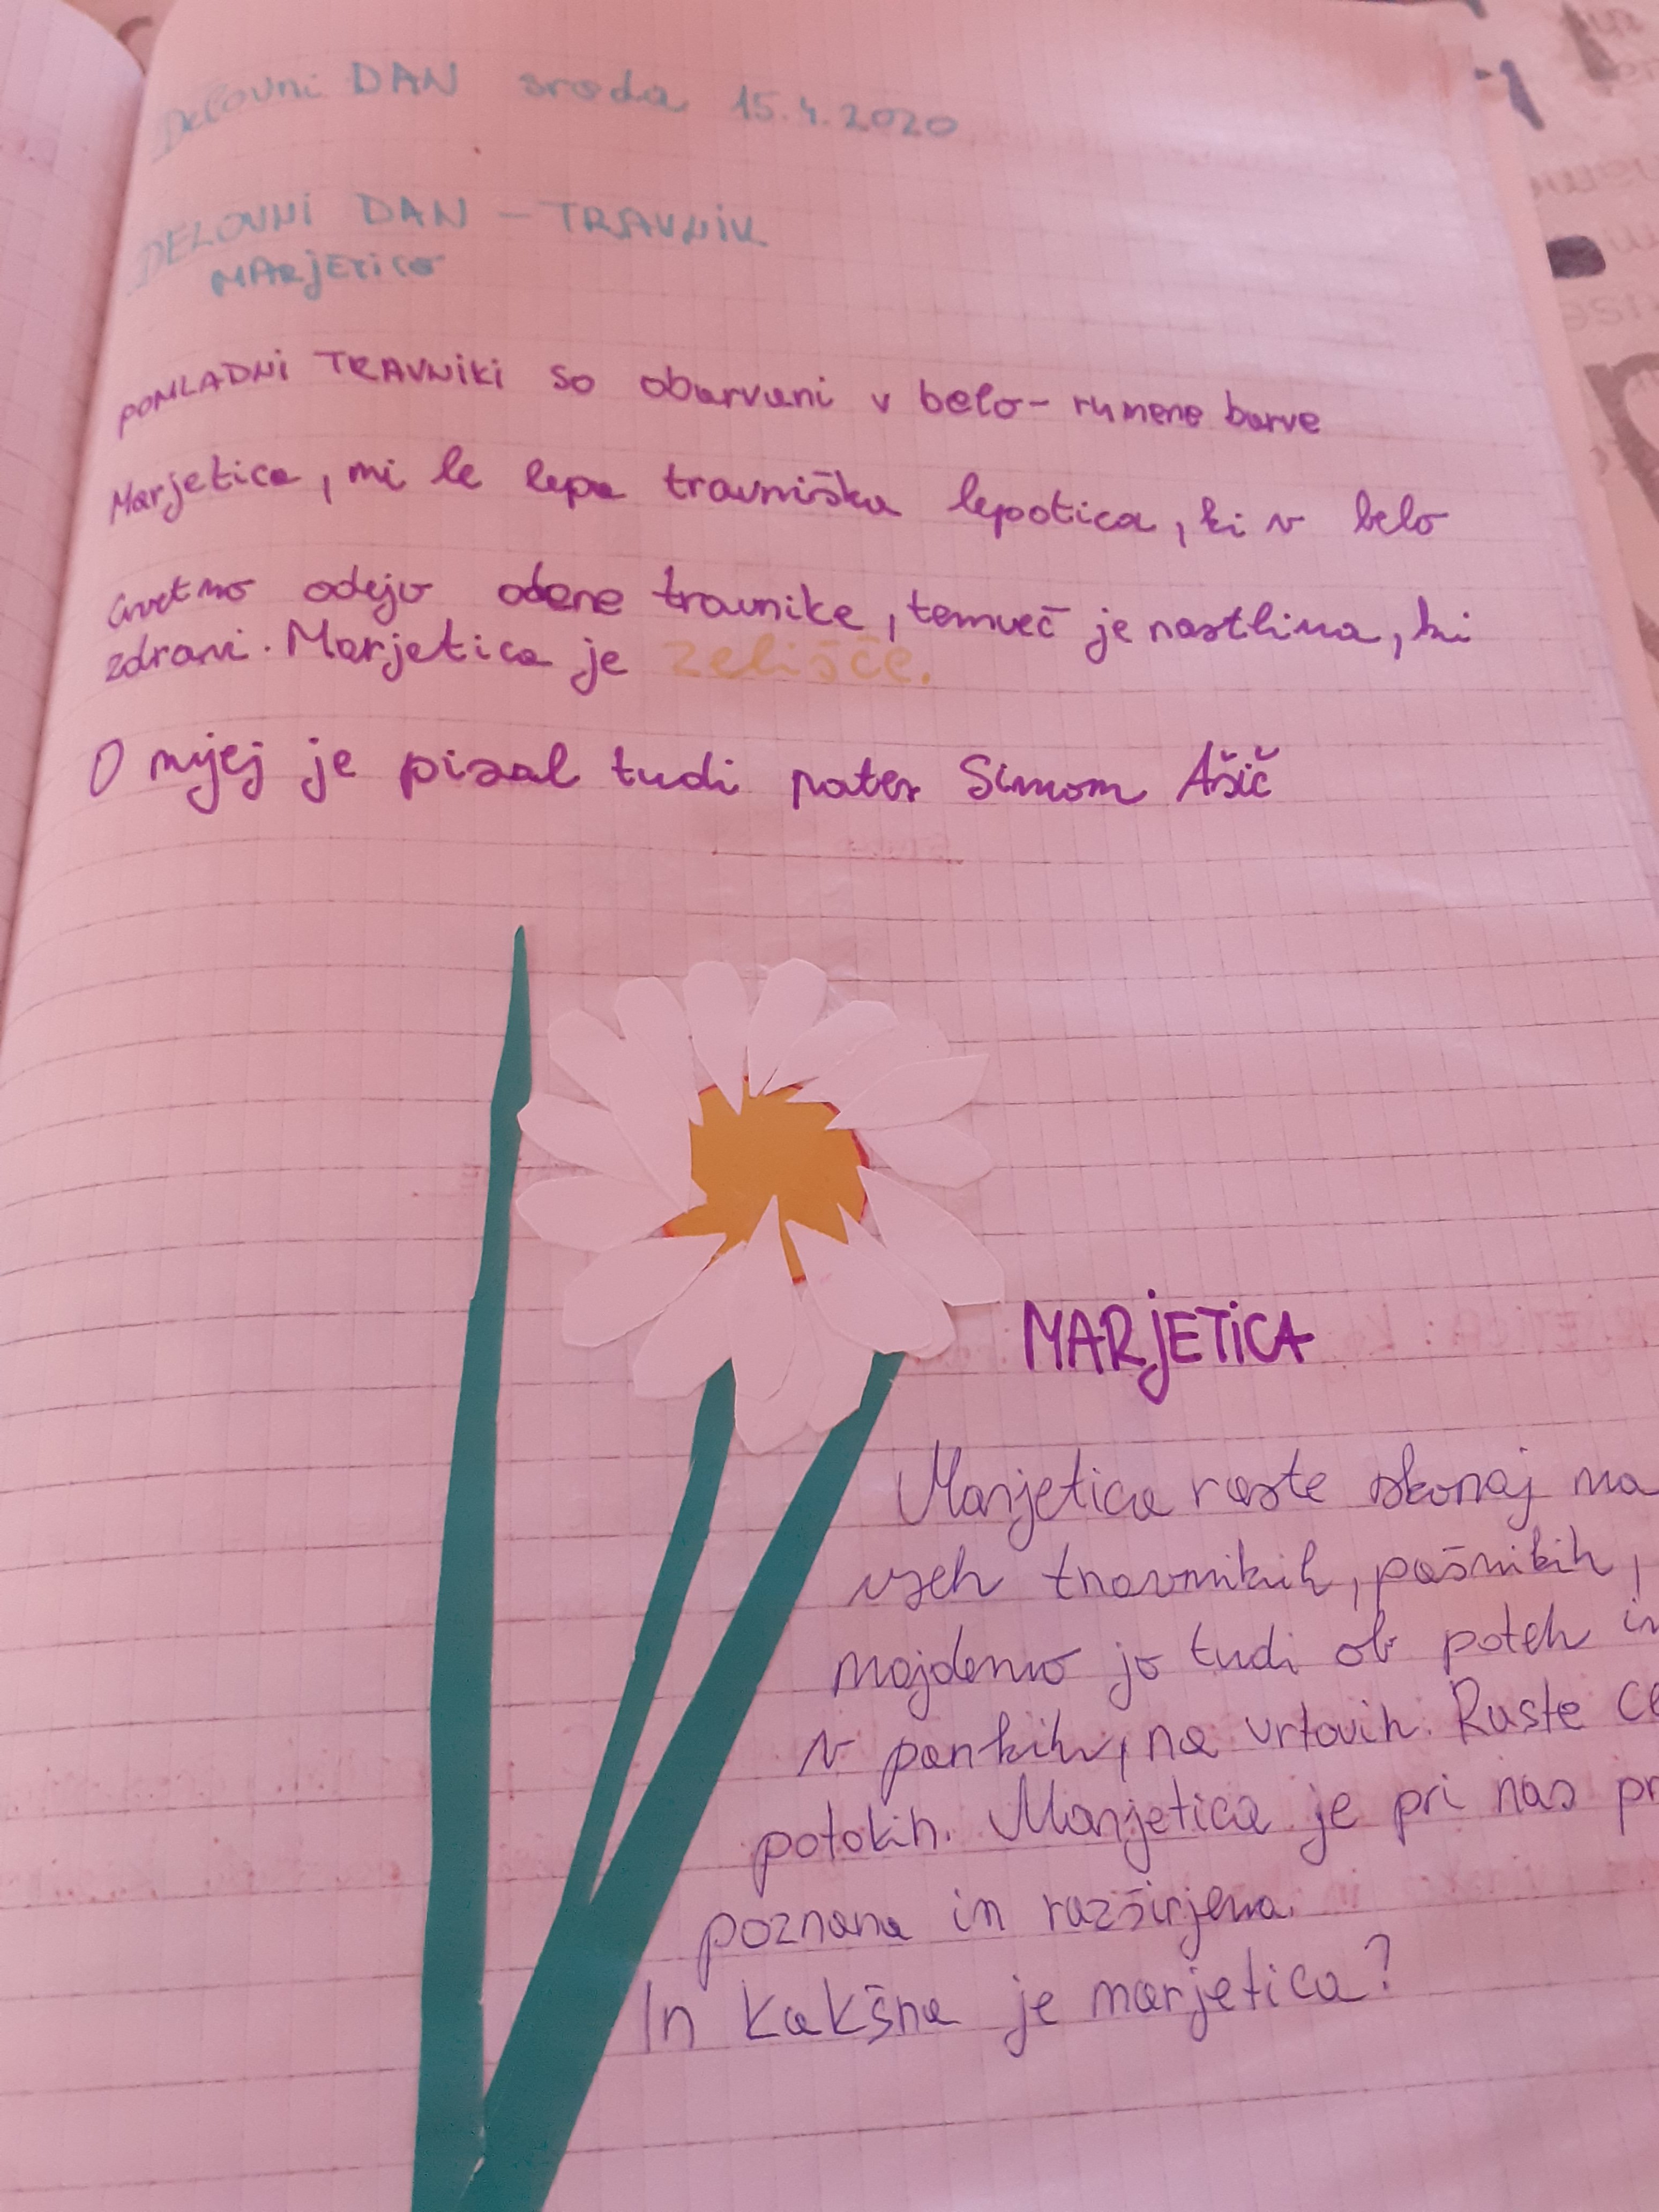 Delovni DAN sreda 15.4.2020
DELOVNI DAN - TRAVNIK
MARjETICA
POMLADNI TRAVNIKI so obarvani v belo-rumene barve
Marjetica, ni le lepa travniška lepotica, ki v belo
cvetno odejo odene travnike, temveč je rastlina, ki
zdravi. Marjetica je zelišče.
O njej je pisal tudi pater Simon Ašič
MARjETICA
Marjetica raste skoraj na
vseh travnikih, pašnikih,
najdemo jo tudi ob poteh in
v parkih, na vrtovih. Raste
potokih. Marjetica je pri nas
poznana in razširjena.
In kakšna je marjetica?